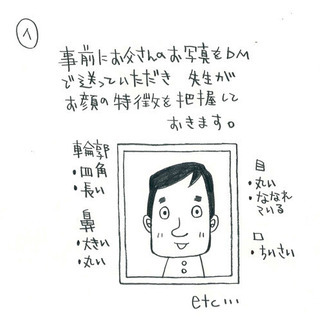 1
事前にお父さんのお写真をDM
で送っていただき 先生が
お顔の特徴を把握して
おきます。
輪郭
・四角
・長い
鼻
・大きい
・丸い
目
・丸い
・ななれ
ている
口
・ちいさい
etc…